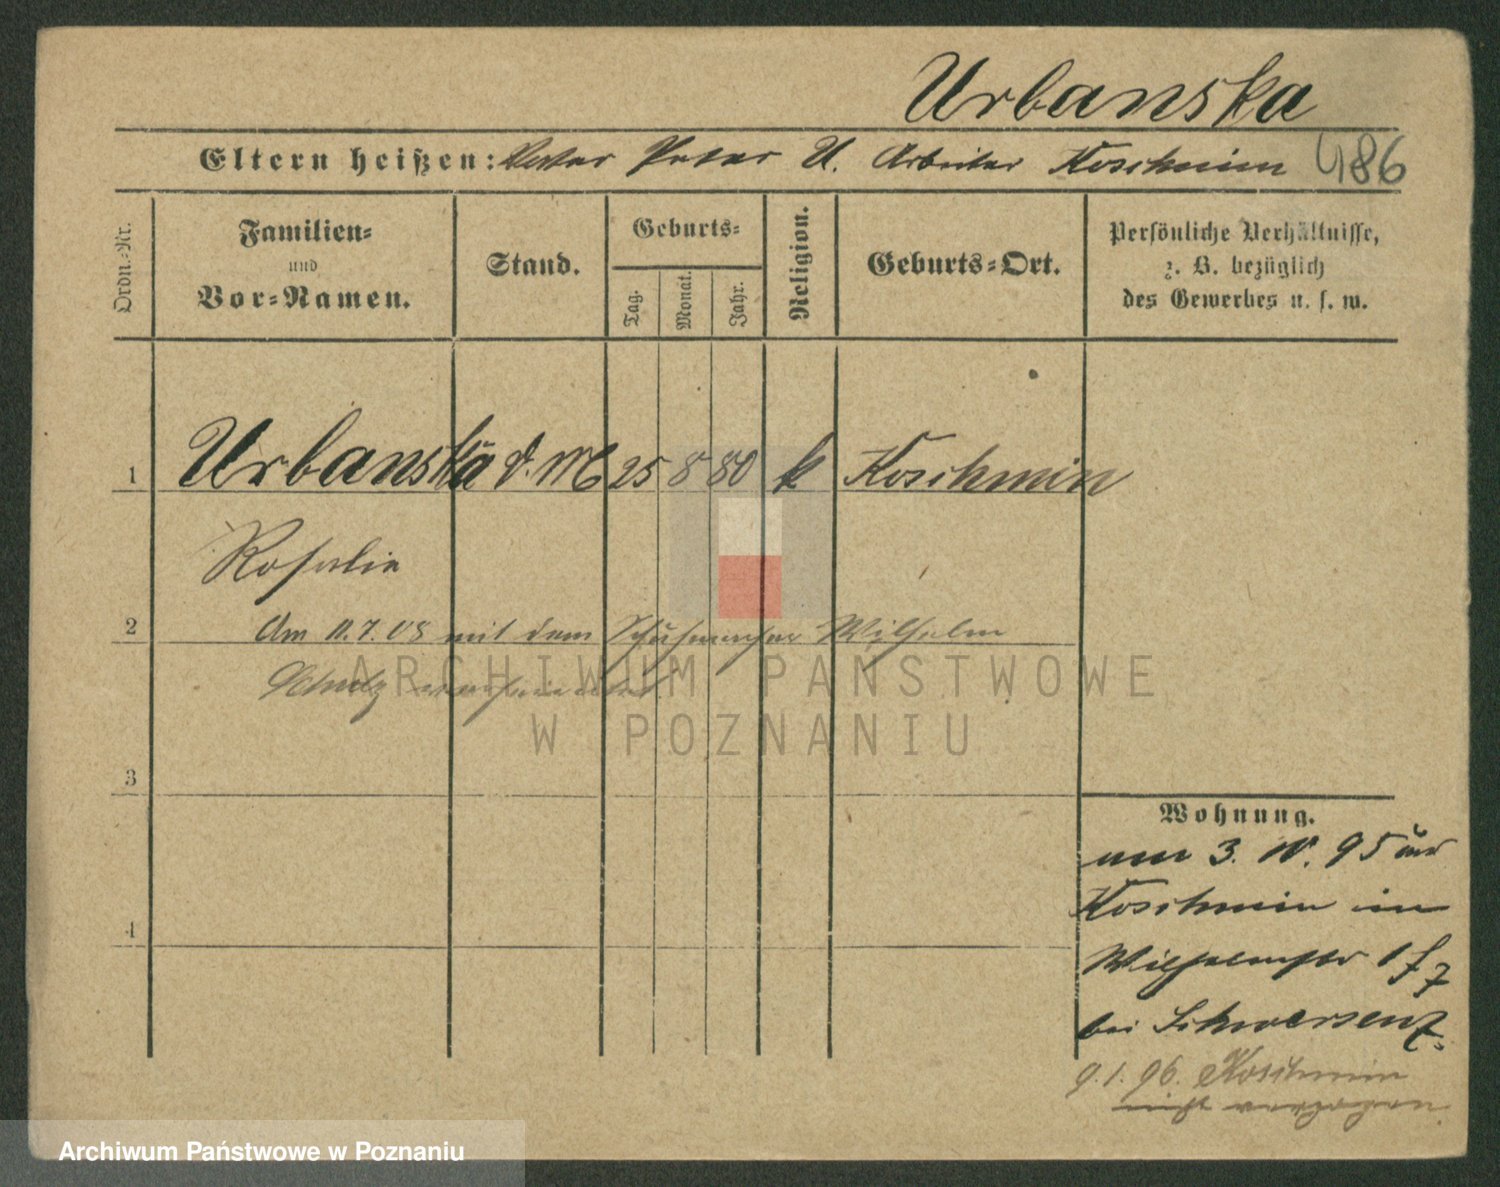 Urbanska
Eltern heißen: Vater Peter U. Arbeiter Koschmin 486
Ordn.-Nr.
Familien-
und
Vor-Namen.
Stand.
Geburts-
Tag.
Monat.
Jahr.
Religion.
Geburts-Ort.
Persönliche Verhältnisse,
z. B. bezüglich
des Gewerbes u. s. w.
1 Urbanska d. M 25 8 80 k Koschmin
Rosalie
2 Am 11.7.08 mit dem Schuhmacher Wilhelm
Schulz verheiratet
ARCHIWUM PAŃSTWOWE
W POZNANIU
3
Wohnung.
3. IV. 95 aus
Koschmin in
4
Wilhelmstr 1
bei Schwersenz.
9.1.96. Koschmin
nicht verzogen.
Archiwum Państwowe w Poznaniu